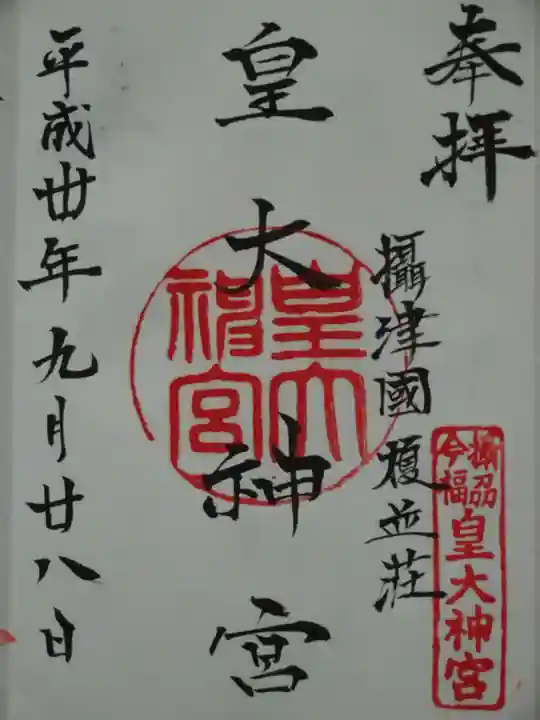 奉拝
攝津國榎並荘
攝沼
今福
皇大神宮
皇大神宮
皇大
神宮
平成丗年九月廿八日